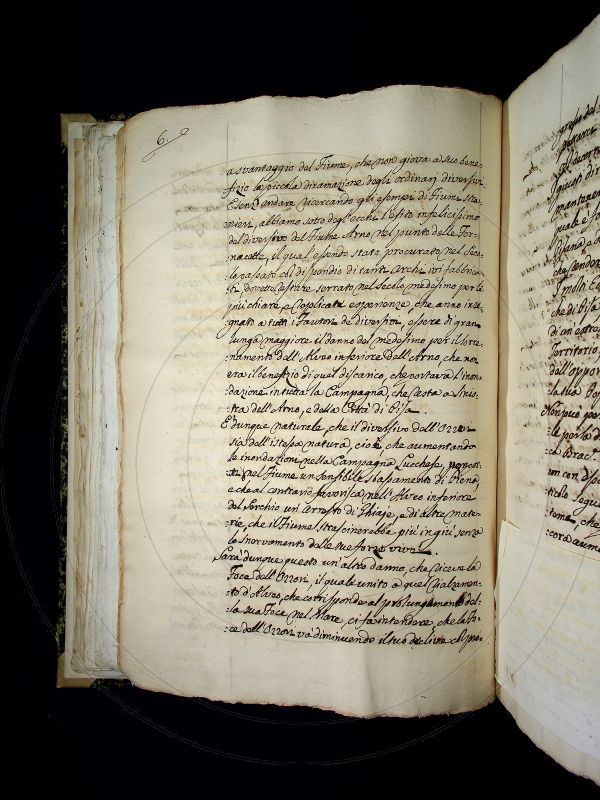 6.
a svantaggio del Fiume, che non giova a suo bene-
fizio la piccola diramazione degli ordinari diversivi.
E senz'andare ricercando gli esempi di Fiumi stra-
nieri, abbiamo sotto degl'occhi l'esito infelicissimo
del diversivo del Fiume Arno nel punto delle For-
nacette, il qual essendo stato procurato nel Seco-
lo passato col dispendio di tanti Archi ivi fabbrica-
ti, dovette restare serrato nel secolo medesimo per le
più chiare, e replicate esperienze, che anno inse-
gnato a tutti i Fautori de diversivi, essere di gran
lunga maggiore il danno del medesimo per il
namento dell'Alveo inferiore dell'Arno, che non
era il benefizio di quel discarico, che portava l'inon-
:dazione in tutta la Campagna, che resta a Sinis-
tra dell'Arno, e della Città di Pisa.
E dunque naturale, che il diversivo dell'Ozzori
sia dell'istessa natura, cioè, che aumentando
le inondazioni nella Campagna Lucchese,
nel Fiume un sensibile sbassamento di Piena,
e che al contrario favorisca nell'Alveo inferiore
del Serchio un arresto di Ghiaje, e di altre mate-
rie, che il Fiume strascinerebbe più in giù senza
lo snervamento delle sue forze vive.
Sarà dunque questo un'altro danno, che riceve la
Foce dell'Ozzori, il quale unito a quel
to d'Alveo, che corrisponde al prolungamento del-
:la sua Foce nel Mare, ci fa intendere, che la Fo-
:ce dell'Ozzori và diminuendo il suo declive col pro-